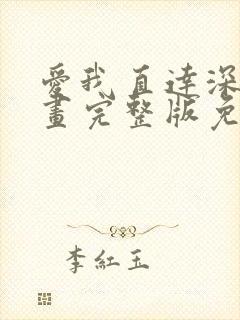 愛我直達深
畫完整版免
李紅玉